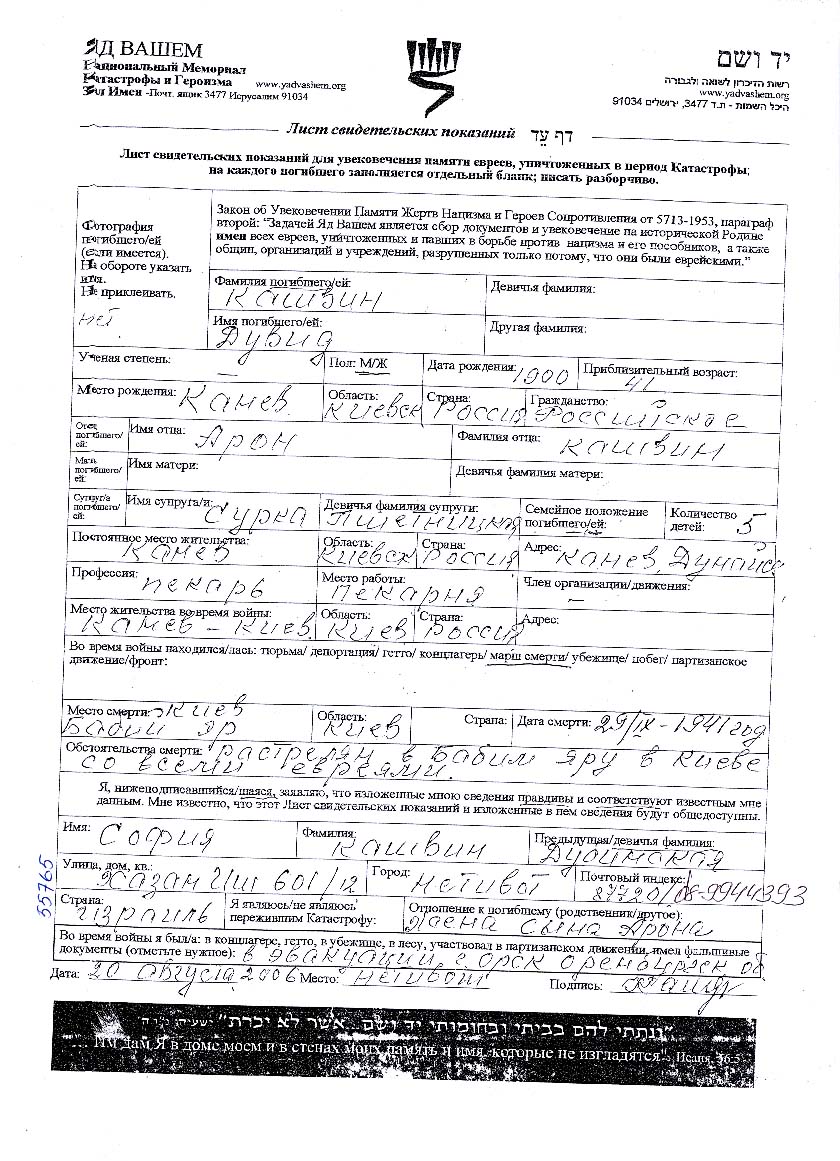 ЯД ВАШЕМ
Национальный Мемориал
Катастрофы и Героизма www.yadvashem.org
Зал Имен -Почт. ящик 3477 Иерусалим 91034
יד ושם
רשות הזיכרון לשואה ולגבורה
www.yadvashem.org
היכל השמות - ת.ד 3477, ירושלים 91034
Лист свидетельских показаний דף עד
Лист свидетельских показаний для увековечения памяти евреев, уничтоженных в период Катастрофы;
на каждого погибшего заполняется отдельный бланк; писать разборчиво.
Фотография
погибшего/ей
(если имеется).
На обороте указать
имя.
Не приклеивать.
нет
Закон об Увековечении Памяти Жертв Нацизма и Героев Сопротивления от 5713-1953, параграф
второй: "Задачей Яд Вашем является сбор документов и увековечение на исторической Родине
имен всех евреев, уничтоженных и павших в борьбе против нацизма и его пособников, а также
общин, организаций и учреждений, разрушенных только потому, что они были еврейскими."
Фамилия погибшего/ей: Кашвин Девичья фамилия:
Имя погибшего/ей: Дувид Другая фамилия:
Ученая степень: — Пол: М/Ж Дата рождения: 1900 Приблизительный возраст: 41
Место рождения: Канев Область: Киевск Страна: Россия Гражданство: Российское
Отец погибшего/ей: Имя отца: Арон Фамилия отца: Кашвин
Мать погибшего/ей: Имя матери: Девичья фамилия матери:
Супруг/а погибшего/ей: Имя супруга/и: Сурка Девичья фамилия супруги: Семейное положение погибшего/ей: Количество детей: 5
Постоянное место жительства: Канев Область: Киевск Страна: Россия Адрес: Канев,
Профессия: пекарь Место работы: пекарня Член организации/движения: —
Место жительства во время войны: Канев - Киев Область: Киев Страна: Россия Адрес:
Во время войны находился/лась: тюрьма/ депортация/ гетто/ концлагерь/ марш смерти/ убежище/ побег/ партизанское
движение/фронт:
Место смерти: Киев Бабий яр Область: Киев Страна: Дата смерти: 29/IX-1941 год
Обстоятельства смерти: растрелян в Бабим яру в Киеве
со всеми евреями.
Я, нижеподписавшийся/шаяся, заявляю, что изложенные мною сведения правдивы и соответствуют известным мне
данным. Мне известно, что этот Лист свидетельских показаний и изложенные в нем сведения будут общедоступны.
Имя: София Фамилия: Кашвин Предыдущая/девичья фамилия:
Улица, дом, кв.: Хазан Иш 601/12 Город: Нетивот Почтовый индекс: 87720/08-9944393
55765
Страна: Израиль Я являюсь/не являюсь пережившим Катастрофу: Отношение к погибшему (родственник/другое): жена сына Арона
Во время войны я был/а: в концлагере, гетто, в убежище, в лесу, участвовал в партизанском движении, имел фальшивые
документы (отметьте нужное): в эвакуации, г Орск об
Дата: 20 августа 2006 Место: Нетивот Подпись:
"ונתתי להם בביתי ובחומותי יד ושם... אשר לא יכרת"
"... Им дам Я в доме моем и в стенах моих память и имя, которые не изгладятся". Исаия, 56:5